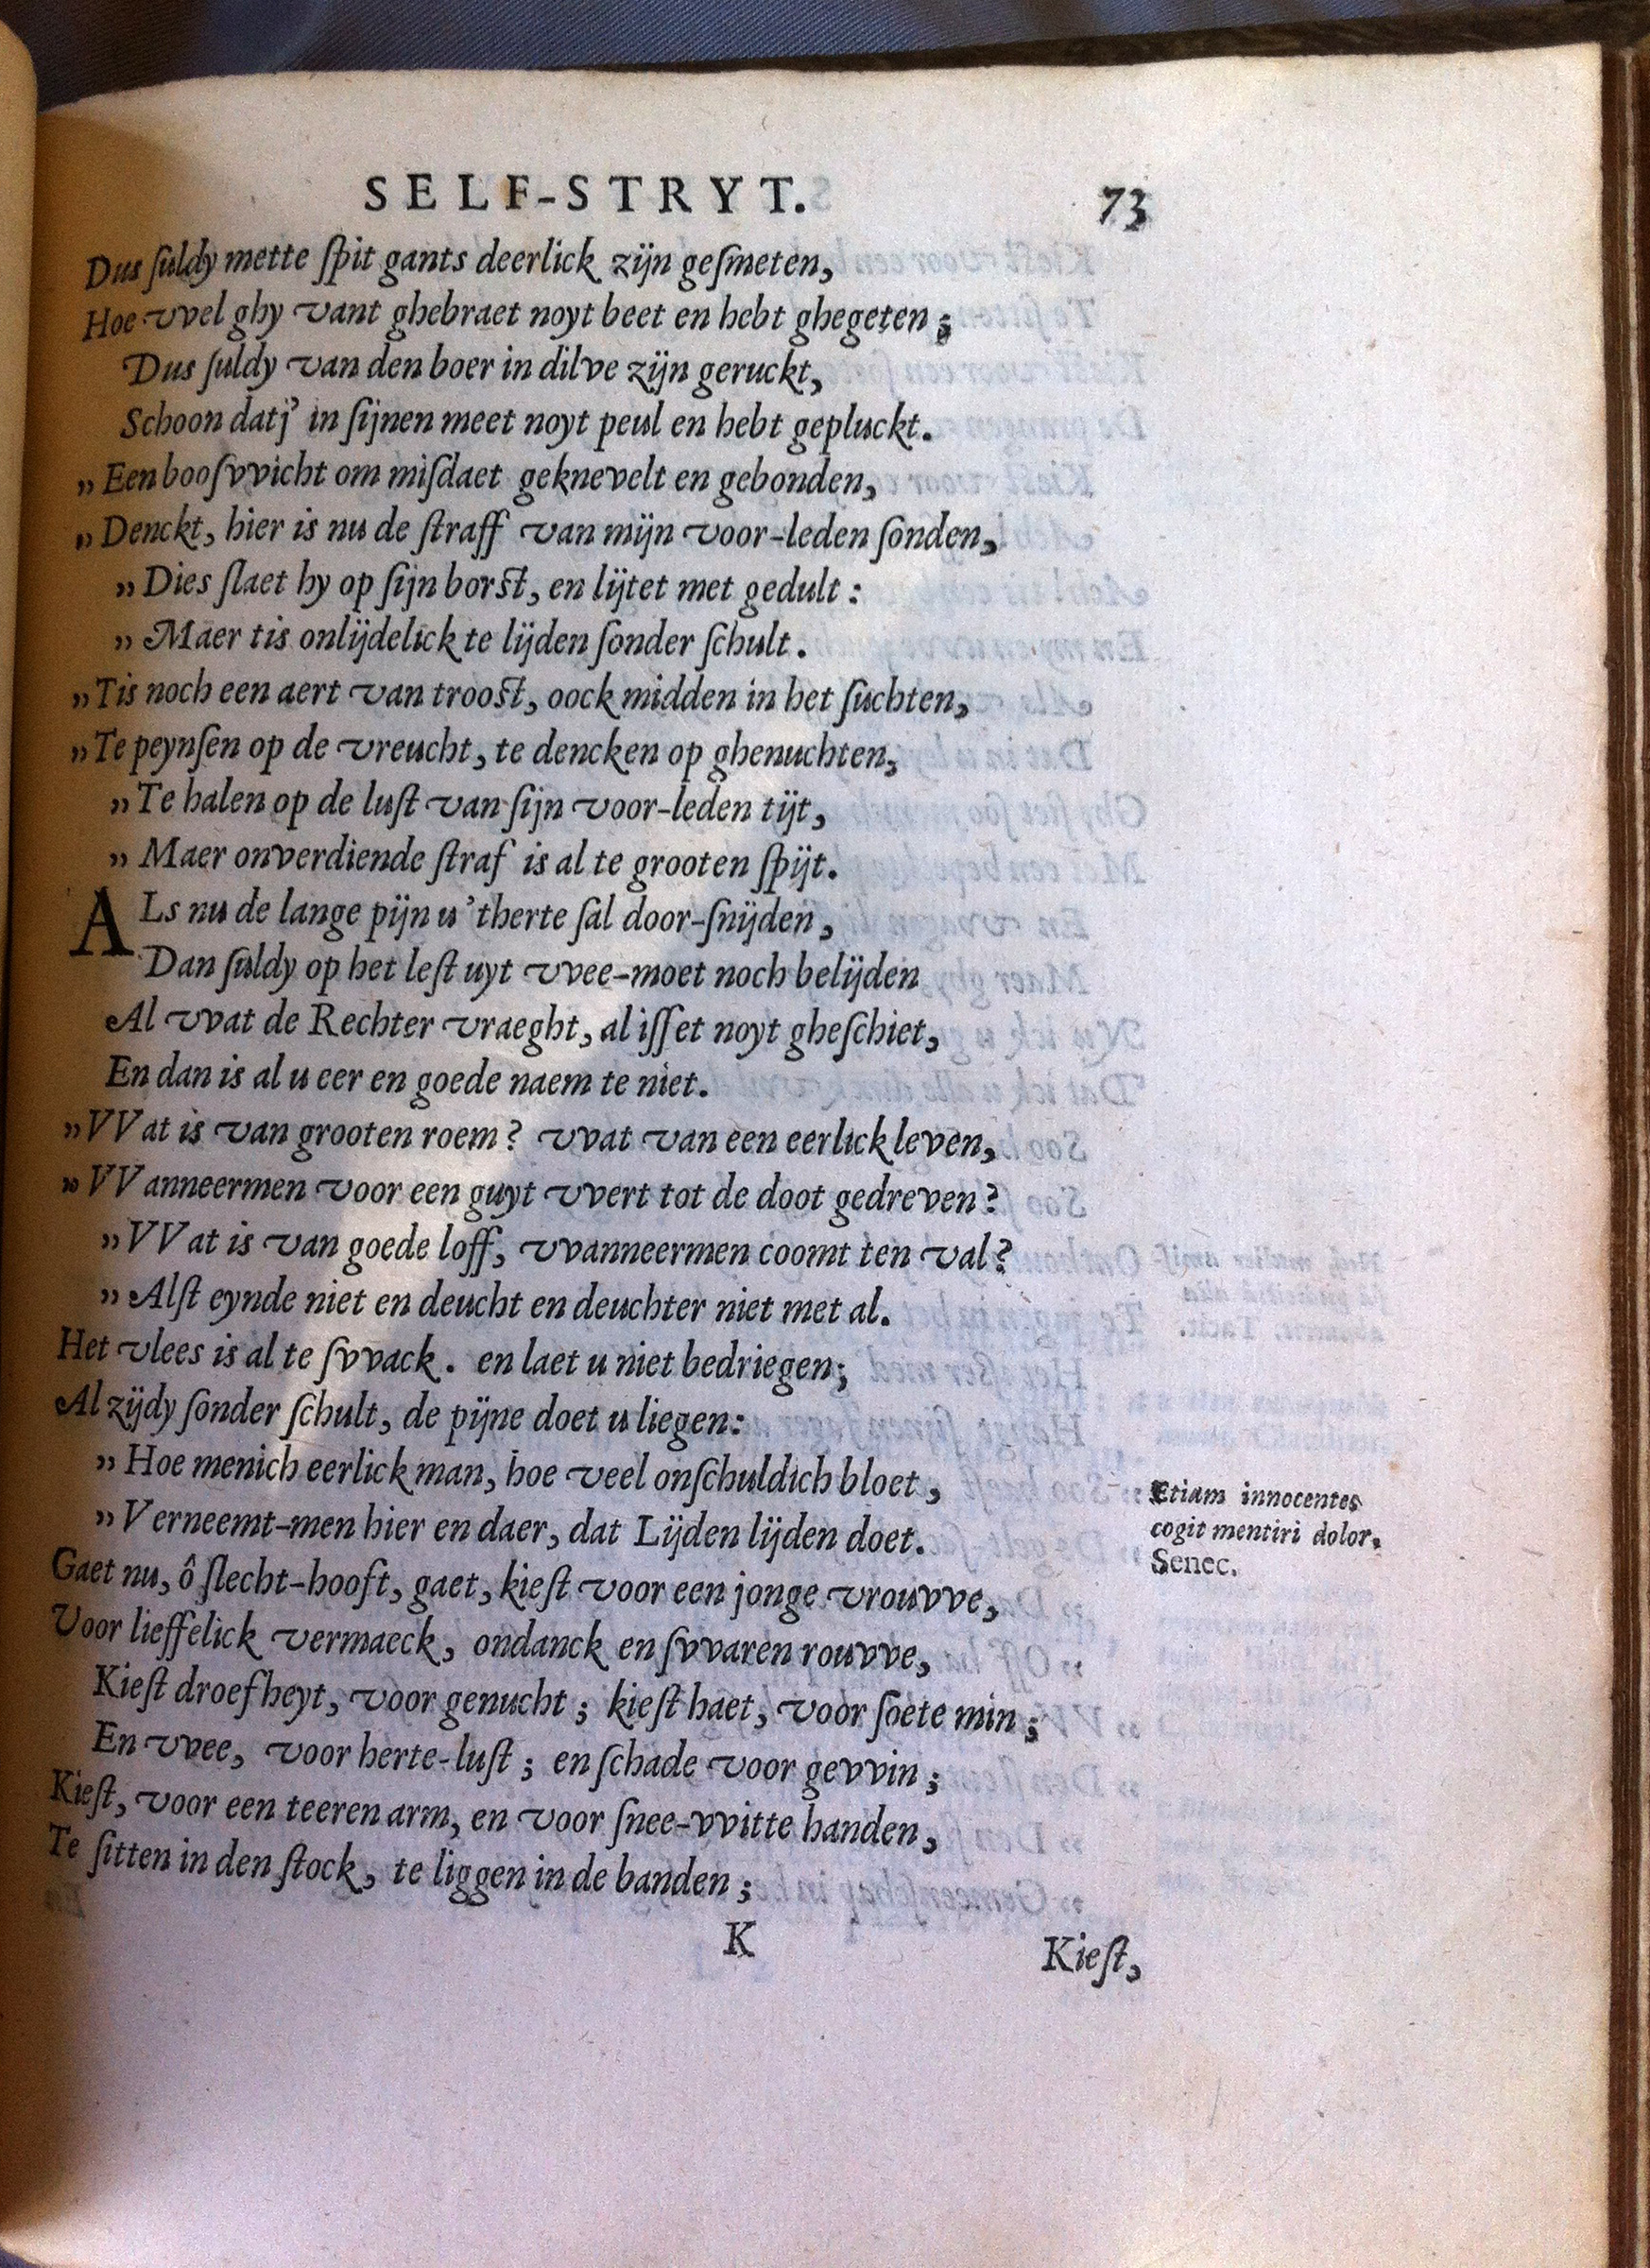 SELF-STRYT. 73
Dus ſuldy mette ſpit gants deerlick zijn geſmeten,
Hoe vvel ghy vant ghebraet noyt beet en hebt ghegeten;
Dus ſuldy van den boer in dilve zijn geruckt,
Schoon datj' in ſijnen meet noyt peul en hebt gepluckt.
„ Een booſvvicht om miſdaet geknevelt en gebonden,
„ Denckt, hier is nu de ſtraff van mijn voor-leden ſonden,
„ Dies ſlaet hy op ſijn borst, en lijtet met gedult:
„ Maer tis onlijdelick te lijden ſonder ſchult.
„ Tis noch een aert van troost, oock midden in het ſuchten,
„ Te peynſen op de vreucht, te dencken op ghenuchten,
„ Te halen op de luſt van ſijn voor-leden tijt,
„ Maer onverdiende ſtraf is al te grooten ſpijt.
ALs nu de lange pijn u 'therte ſal door-ſnijden,
Dan ſuldy op het leſt uyt vvee-moet noch belijden
Al vvat de Rechter vraeght, al iſſet noyt gheſchiet,
En dan is al u eer en goede naem te niet.
„ VVat is van grooten roem? vvat van een eerlick leven,
„ VVanneermen voor een guyt vvert tot de doot gedreven?
„ VVat is van goede loff, vvanneermen coomt ten val?
„ Alſt eynde niet en deucht en deuchter niet met al.
Het vlees is al te ſvvack. en laet u niet bedriegen;
Al zijdy ſonder ſchult, de pijne doet u liegen:
„ Hoe menich eerlick man, hoe veel onſchuldich bloet,
„ Verneemt-men hier en daer, dat Lijden lijden doet.
Etiam innocentes
cogit mentiri dolor.
Senec.
Gaet nu, ô ſlecht-hooft, gaet, kieſt voor een jonge vrouvve,
Voor lieffelick vermaeck, ondanck en ſvvaren rouvve,
Kieſt droefheyt, voor genucht; kieſt haet, voor ſoete min;
En vvee, voor herte-luſt; en ſchade voor gevvin;
Kieſt, voor een teeren arm, en voor ſnee-vvitte handen,
Te ſitten in den ſtock, te liggen in de banden;
K Kieſt,